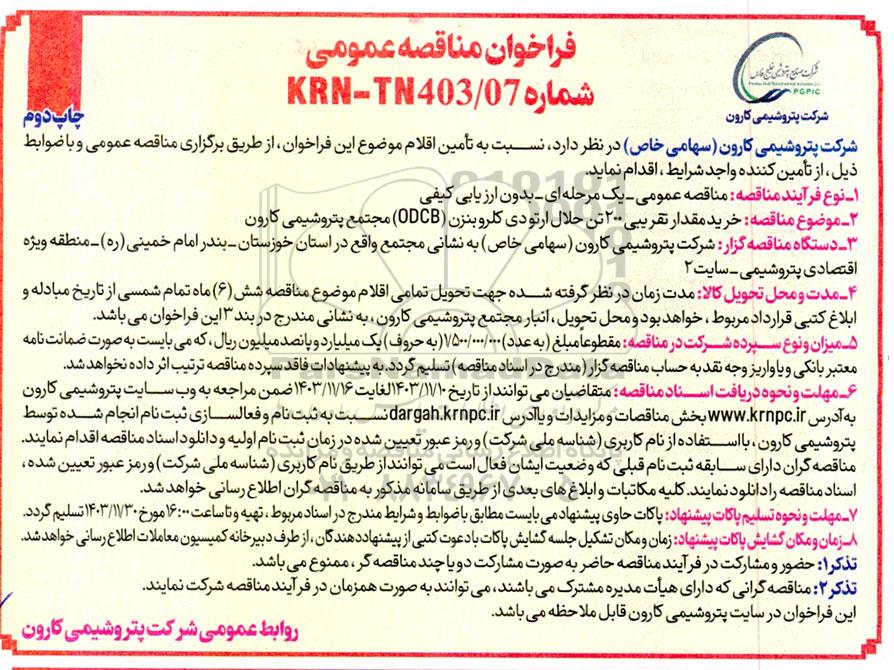 فراخوان مناقصه عمومی
شماره KRN-TN403/07
چاپ دوم
شرکت صنایع پتروشیمی خلیج فارس
PGPIC
شرکت پتروشیمی کارون
شرکت پتروشیمی کارون (سهامی خاص) در نظر دارد، نسبت به تأمین اقلام موضوع این فراخوان، از طریق برگزاری مناقصه عمومی و با ضوابط
ذیل، از تأمین کننده واجد شرایط، اقدام نماید.
۱-نوع فرآیند مناقصه: مناقصه عمومی-یک مرحله ای-بدون ارزیابی کیفی
۲-موضوع مناقصه: خرید مقدار تقریبی ۲۰۰ تن حلال ارتو دی کلرو بنزن (ODCB) مجتمع پتروشیمی کارون
۳-دستگاه مناقصه گزار: شرکت پتروشیمی کارون (سهامی خاص) به نشانی مجتمع واقع در استان خوزستان-بندر امام خمینی (ره)-منطقه ویژه
اقتصادی پتروشیمی-سایت ۲
۴-مدت و محل تحویل کالا: مدت زمان در نظر گرفته شده جهت تحویل تمامی اقلام موضوع مناقصه شش (۶) ماه تمام شمسی از تاریخ مبادله و
ابلاغ کتبی قرارداد مربوط، خواهد بود و محل تحویل، انبار مجتمع پتروشیمی کارون، به نشانی مندرج در بند ۳ این فراخوان می باشد.
۵-میزان و نوع سپرده شرکت در مناقصه: مقطوعاً مبلغ (به عدد) ۱/۵۰۰/۰۰۰/۰۰۰ (به حروف) یک میلیارد و پانصد میلیون ریال، که می بایست به صورت ضمانت نامه
معتبر بانکی و یا واریز وجه نقد به حساب مناقصه گزار (مندرج در اسناد مناقصه) تسلیم گردد. به پیشنهادات فاقد سپرده مناقصه ترتیب اثر داده نخواهد شد.
۶-مهلت و نحوه دریافت اسناد مناقصه: متقاضیان می توانند از تاریخ ۱۴۰۳/۱۱/۱۰ لغایت ۱۴۰۳/۱۱/۱۶ ضمن مراجعه به وب سایت پتروشیمی کارون
به آدرس www.krnpc.ir بخش مناقصات و مزایدات و یا آدرس dargah.krnpc.ir نسبت به ثبت نام و فعالسازی ثبت نام انجام شده توسط
پتروشیمی کارون، با استفاده از نام کاربری (شناسه ملی شرکت) و رمز عبور تعیین شده در زمان ثبت نام اولیه و دانلود اسناد مناقصه اقدام نمایند.
مناقصه گران دارای سابقه ثبت نام قبلی که وضعیت ایشان فعال است می توانند از طریق نام کاربری (شناسه ملی شرکت) و رمز عبور تعیین شده،
اسناد مناقصه را دانلود نمایند. کلیه مکاتبات و ابلاغ های بعدی از طریق سامانه مذکور به مناقصه گران اطلاع رسانی خواهد شد.
۷-مهلت و نحوه تسلیم پاکات پیشنهاد: پاکات حاوی پیشنهاد می بایست مطابق با ضوابط و شرایط مندرج در اسناد مربوط، تهیه و تا ساعت ۱۶:۰۰ مورخ ۱۴۰۳/۱۱/۳۰ تسلیم گردد.
۸-زمان و مکان گشایش پاکات پیشنهاد: زمان و مکان تشکیل جلسه گشایش پاکات با دعوت کتبی از پیشنهاددهندگان، از طرف دبیرخانه کمیسیون معاملات اطلاع رسانی خواهد شد.
تذکر۱: حضور و مشارکت در فرآیند مناقصه حاضر به صورت مشارکت دو یا چند مناقصه گر، ممنوع می باشد.
تذکر۲: مناقصه گرانی که دارای هیأت مدیره مشترک می باشند، می توانند به صورت همزمان در فرآیند مناقصه شرکت نمایند.
این فراخوان در سایت پتروشیمی کارون قابل ملاحظه می باشد.
روابط عمومی شرکت پتروشیمی کارون